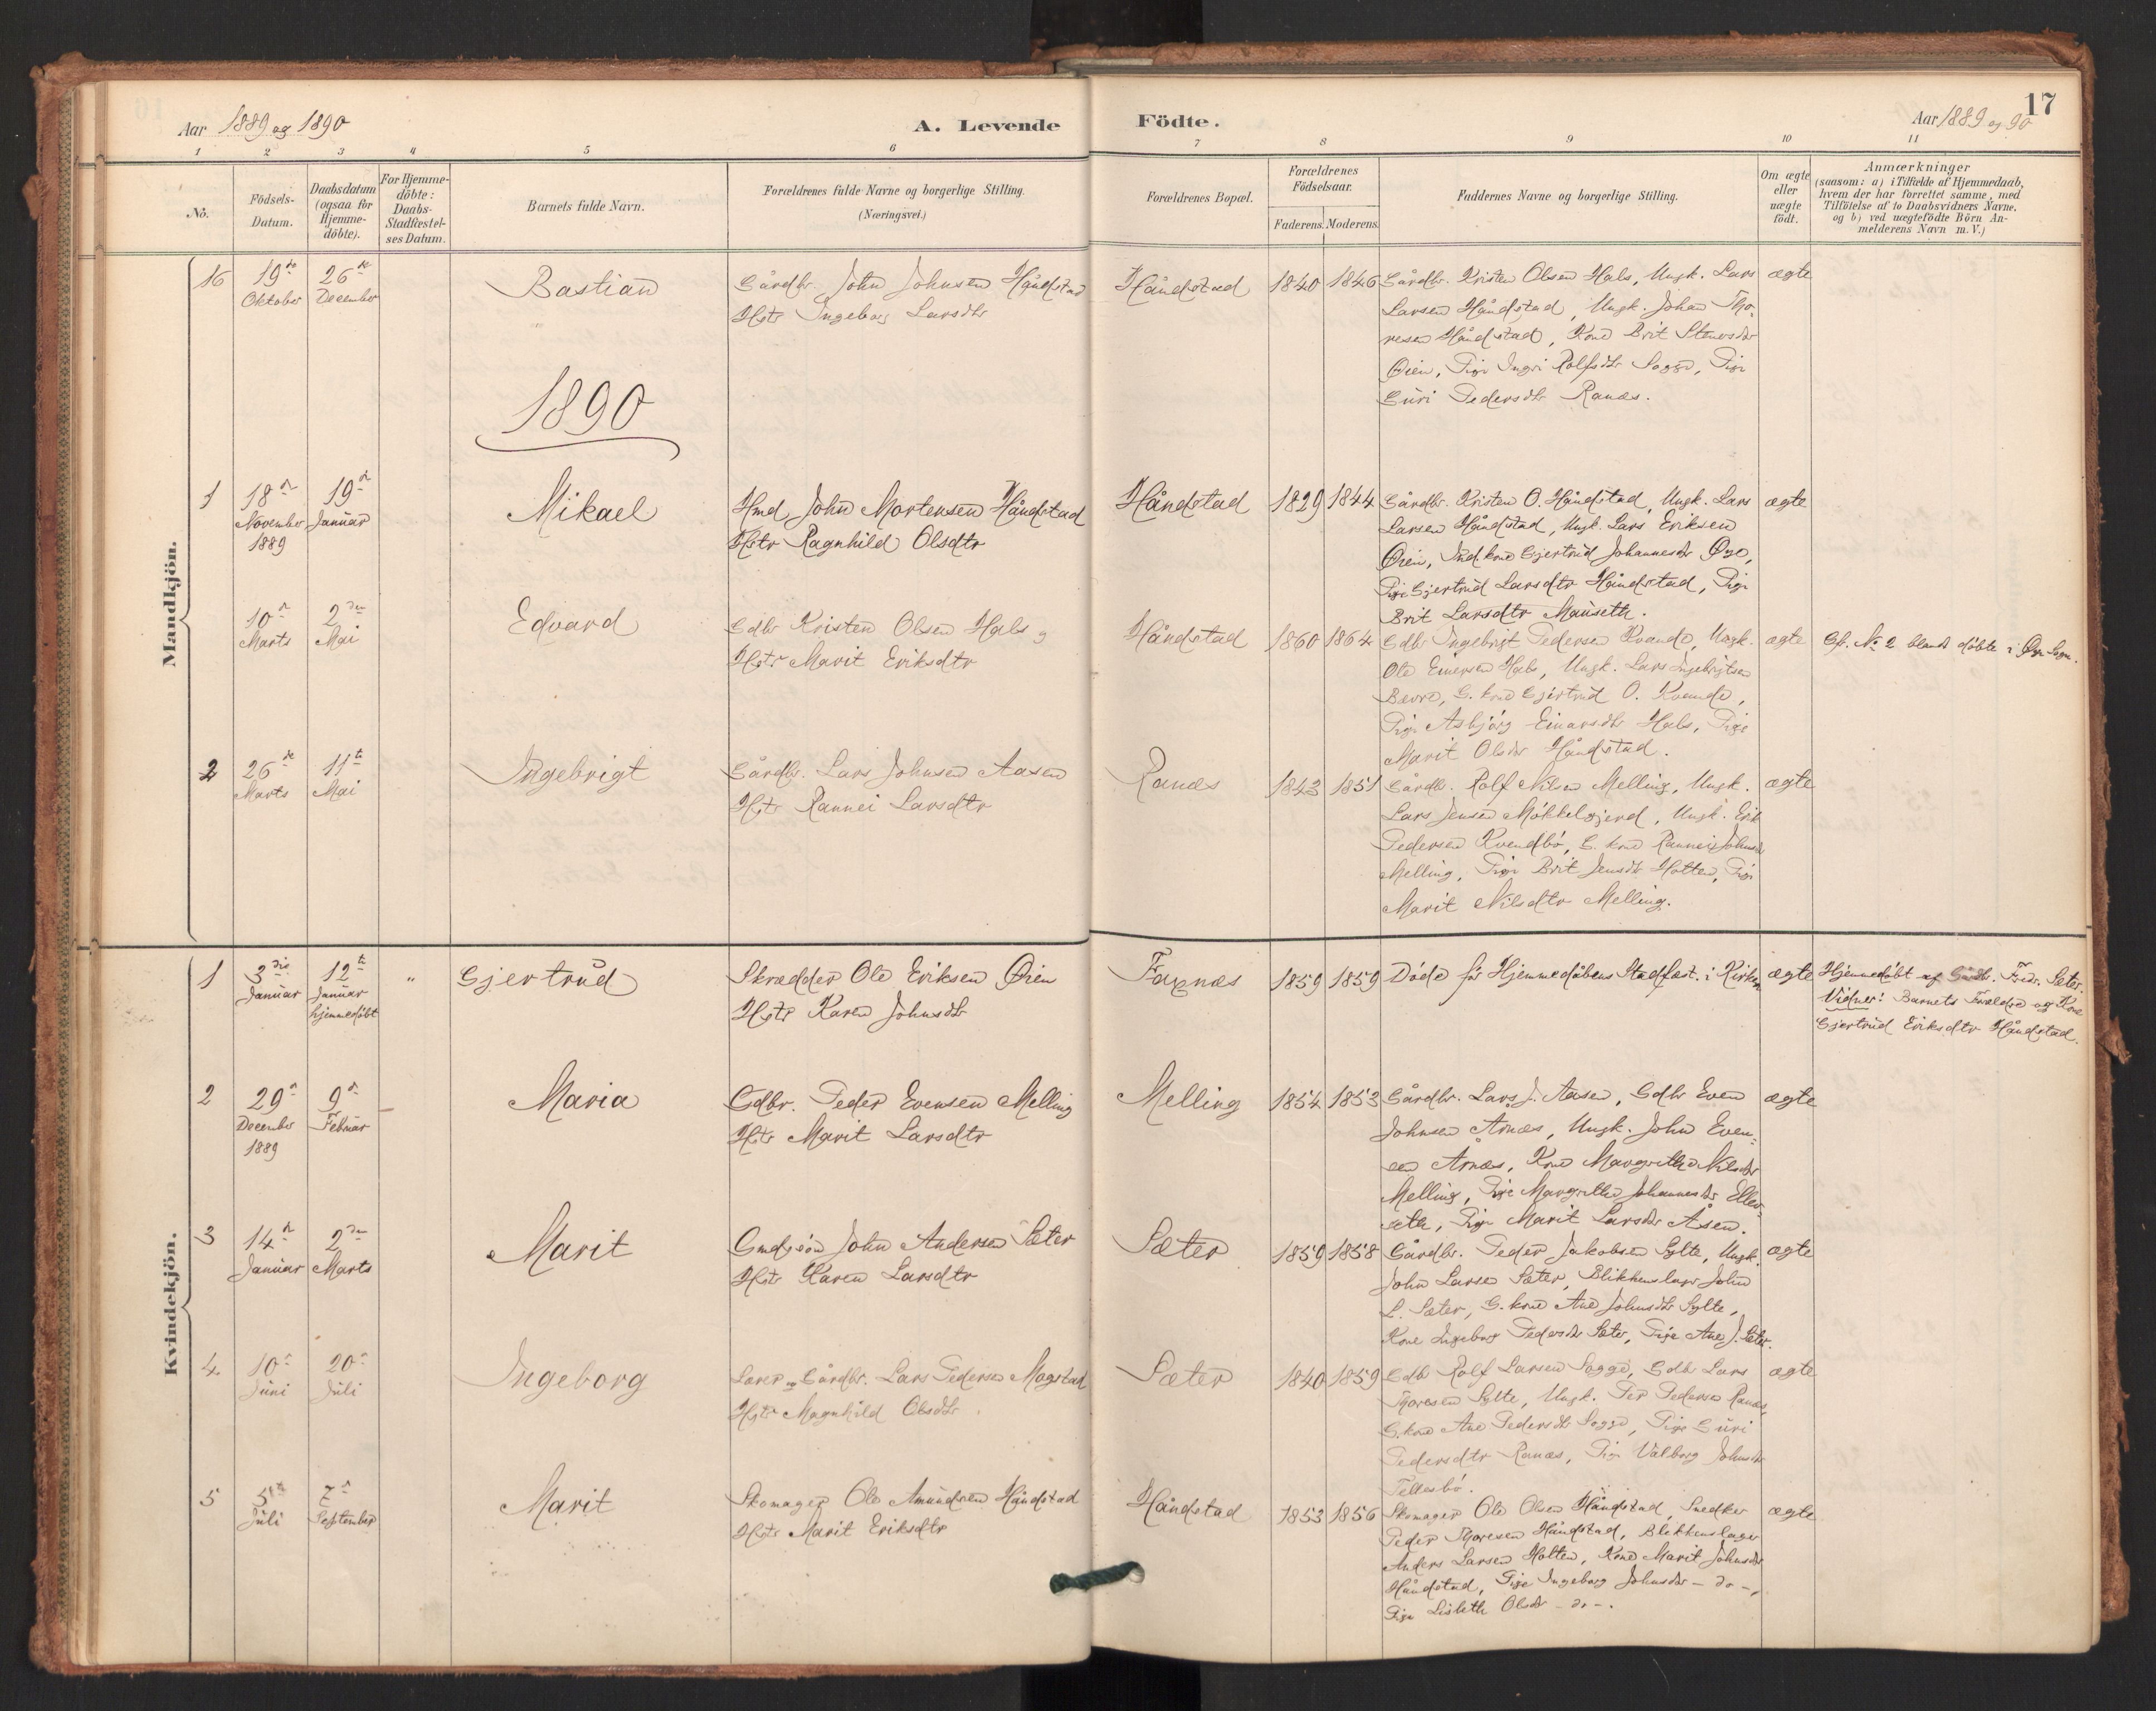 Aar 1889 og 1890
A. Levende Födte.
Aar 1889 og 90
17
1 2 3 4 5 6 7 8 9 10 11
No.
Födsels-Datum.
Daabsdatum (ogsaa for Hjemme-döbte).
For Hjemme-döbte: Daabs-Stadfæstel-ses Datum.
Barnets fulde Navn.
Forældrenes fulde Navne og borgerlige Stilling.
(Næringsvei.)
Forældrenes Bopæl.
Forældrenes Födselsaar.
Faderens. Moderens.
Faddernes Navne og borgerlige Stilling.
Om ægte eller uægte födt.
Anmærkninger
(saasom: a) i Tilfælde af Hjemmedaab, hvem der har forrettet samme, med Tilföielse af to Daabsvidners Navne. og b) ved uægtefödte Börn An-melderens Navn m. V.)
Mandkjön.
16 19de Oktober 26de December Bastian
Gårdbr. John Johnsen Håndstad
Hstr Ingeborg Larsdtr
Håndstad 1840 1846
Gårdbr. Kristen Olsen Hals, Ungk. Lars
Larsen Håndstad, Ungk. Johan Tho-
resen Håndstad, Kone Brit Stenersdtr
Øien, Pige Ingri Rolfsdtr Sogge, Pige
Guri Pedersdtr Ranæs.
ægte
1890
1 18de November 1889 19de Januar Mikael
Hmd John Mortensen Håndstad
Hstr Ragnhild Olsdtr
Håndstad 1829 1844
Gårdbr. Kristen O. Håndstad, Ungk. Lars
Larsen Håndstad, Ungk. Lars Eriksen
Øien, Ind. kone Gjertrud Johannesdtr Øye,
Pige Gjertrud Larsdtr Håndstad, Pige
Brit Larsdtr Mauseth.
ægte
10de Marts 2den Mai Edvard
Gdbr Kristen Olsen Hals og
Hstr Marit Eriksdtr
Håndstad 1860 1864
Gdbr Ingebrigt Pedersen Kvande, Ungk.
Ole Einersen Hals, Ungk. Lars Ingebrigtsen
Bævre, G. kone Gjertrud O. Kvande,
Pige Asbjörg Einarsdtr Hals, Pige
Marit Olsdtr Håndstad.
ægte
Cfr. No 2 blandt döbte i Øye Sogn.
2 26de Marts 11te Mai Ingebrigt
Gårdbr. Lars Johnsen Aasen
Hstr Rannei Larsdtr
Ranæs 1843 1851
Gårdbr. Rolf Nilsen Melling, Ungk.
Lars Jensen Mökkelgjerd, Ungk. Erik
Pedersen Kvendbö, G. kone Rannei Johnsdtr
Melling, Pige Brit Jensdtr Holten, Pige
Marit Nilsdtr Melling.
ægte
Kvindekjön.
1 3die Januar 12te Januar hjemmedöbt " Gjertrud
Skrædder Ole Eriksen Øien
Hstr Karen Johnsdtr
Faxnæs 1859 1859
Döde för Hjemmedåbens Stadfæst. i Kirken
ægte
Hjemmedöbt af Gårdbr. Fredr. Sæter.
Vidner: Barnets Forældre og Kone
Gjertrud Eriksdtr Håndstad.
2 29de December 1889 9de Februar Maria
Gdbr. Peder Evensen Melling
Hstr Marit Larsdtr
Melling 1854 1853
Gårdbr. Lars J. Aasen, Gdbr Even
Johnsen Årnæs, Ungk. John Even-
sen Årnæs, Kone Margrethe Nilsdtr
Melling, Pige Margrethe Johannesdtr Eller-
seth, Pige Marit Larsdtr Åsen.
ægte
3 14de Januar 2den Marts Marit
Gmdsön John Andersen Sæter
Hstr Karen Larsdtr
Sæter 1859 1858
Gårdbr. Peder Jakobsen Sylte, Ungk.
John Larsen Sæter, Blikkenslager John
L. Sæter, G. kone Ane Johnsdtr Sylte,
Kone Ingeborg Pedersdtr Sæter, Pige Ane J. Sæter.
ægte
4 10de Juni 20de Juli Ingeborg
Lærer og Gårdbr. Lars Pedersen Mogstad
Hstr Magnhild Olsdtr.
Sæter 1840 1859
Gdbr Rolf Larsen Sogge, Gdbr Lars
Thoresen Sylte, Ungk. Per Pedersen Ranæs,
G. kone Ane Pedersdtr Sogge, Pige Guri
Pedersdtr Ranæs, Pige Valborg Johnsdtr
Fellesbö.
ægte
5 5te Juli 7de September Marit
Skomager Ole Amundsen Håndstad
Hstr Marit Eriksdtr
Håndstad 1853 1856
Skomager Ole Olsen Håndstad, Snedker
Peder Thoresen Håndstad, Blikkenslager
Anders Larsen Holten, Kone Marit Johnsdtr
Håndstad, Pige Ingeborg Johnsdtr - do -,
Pige Lisbeth Olsdtr - do -.
ægte